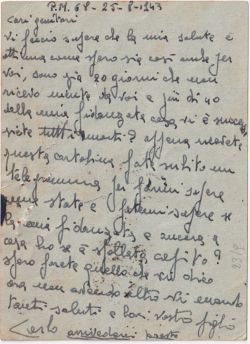 P.M. 68 - 25-8-1943
Cari genitori
Vi faccio sapere che la mia salute è
ottima come spero sia così anche per
voi, sono già 20 giorni che non
ricevo niente da voi e più di 40
della mia fidanzata cosa vi è succe
siete tutti morti? appena
questa cartolina fate subito un
telegramma per farmi sapere
come state e fatemi sapere se
la mia fidanzata è ancora a
casa ho se è sfollata capito?
spero farete quello che vi dico
ora non avendo altro vi mando
tanti saluti e baci vostro figlio
Carlo arrivederci presto